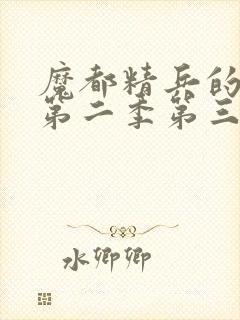 魔都精兵的
第二季第三
水卿卿